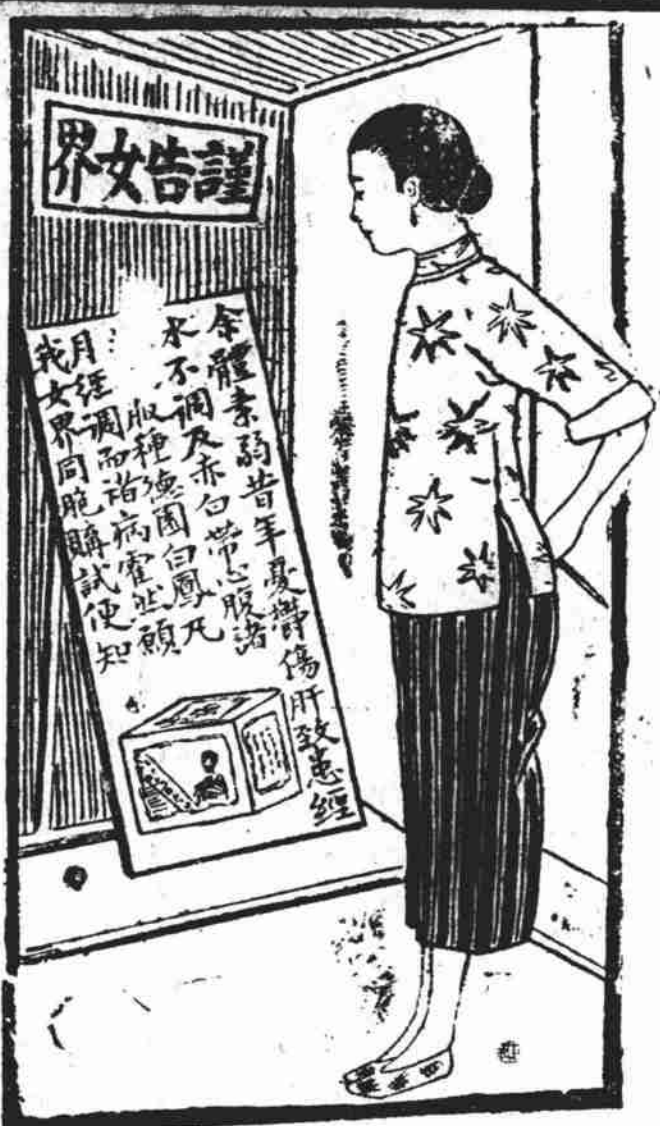 謹告女界
余體素弱昔年憂鬱傷肝致患經
水不調及赤白帶心腹諸
服種德園白鳳丸
月經調而諸病霍然願
我女界同胞購試便知